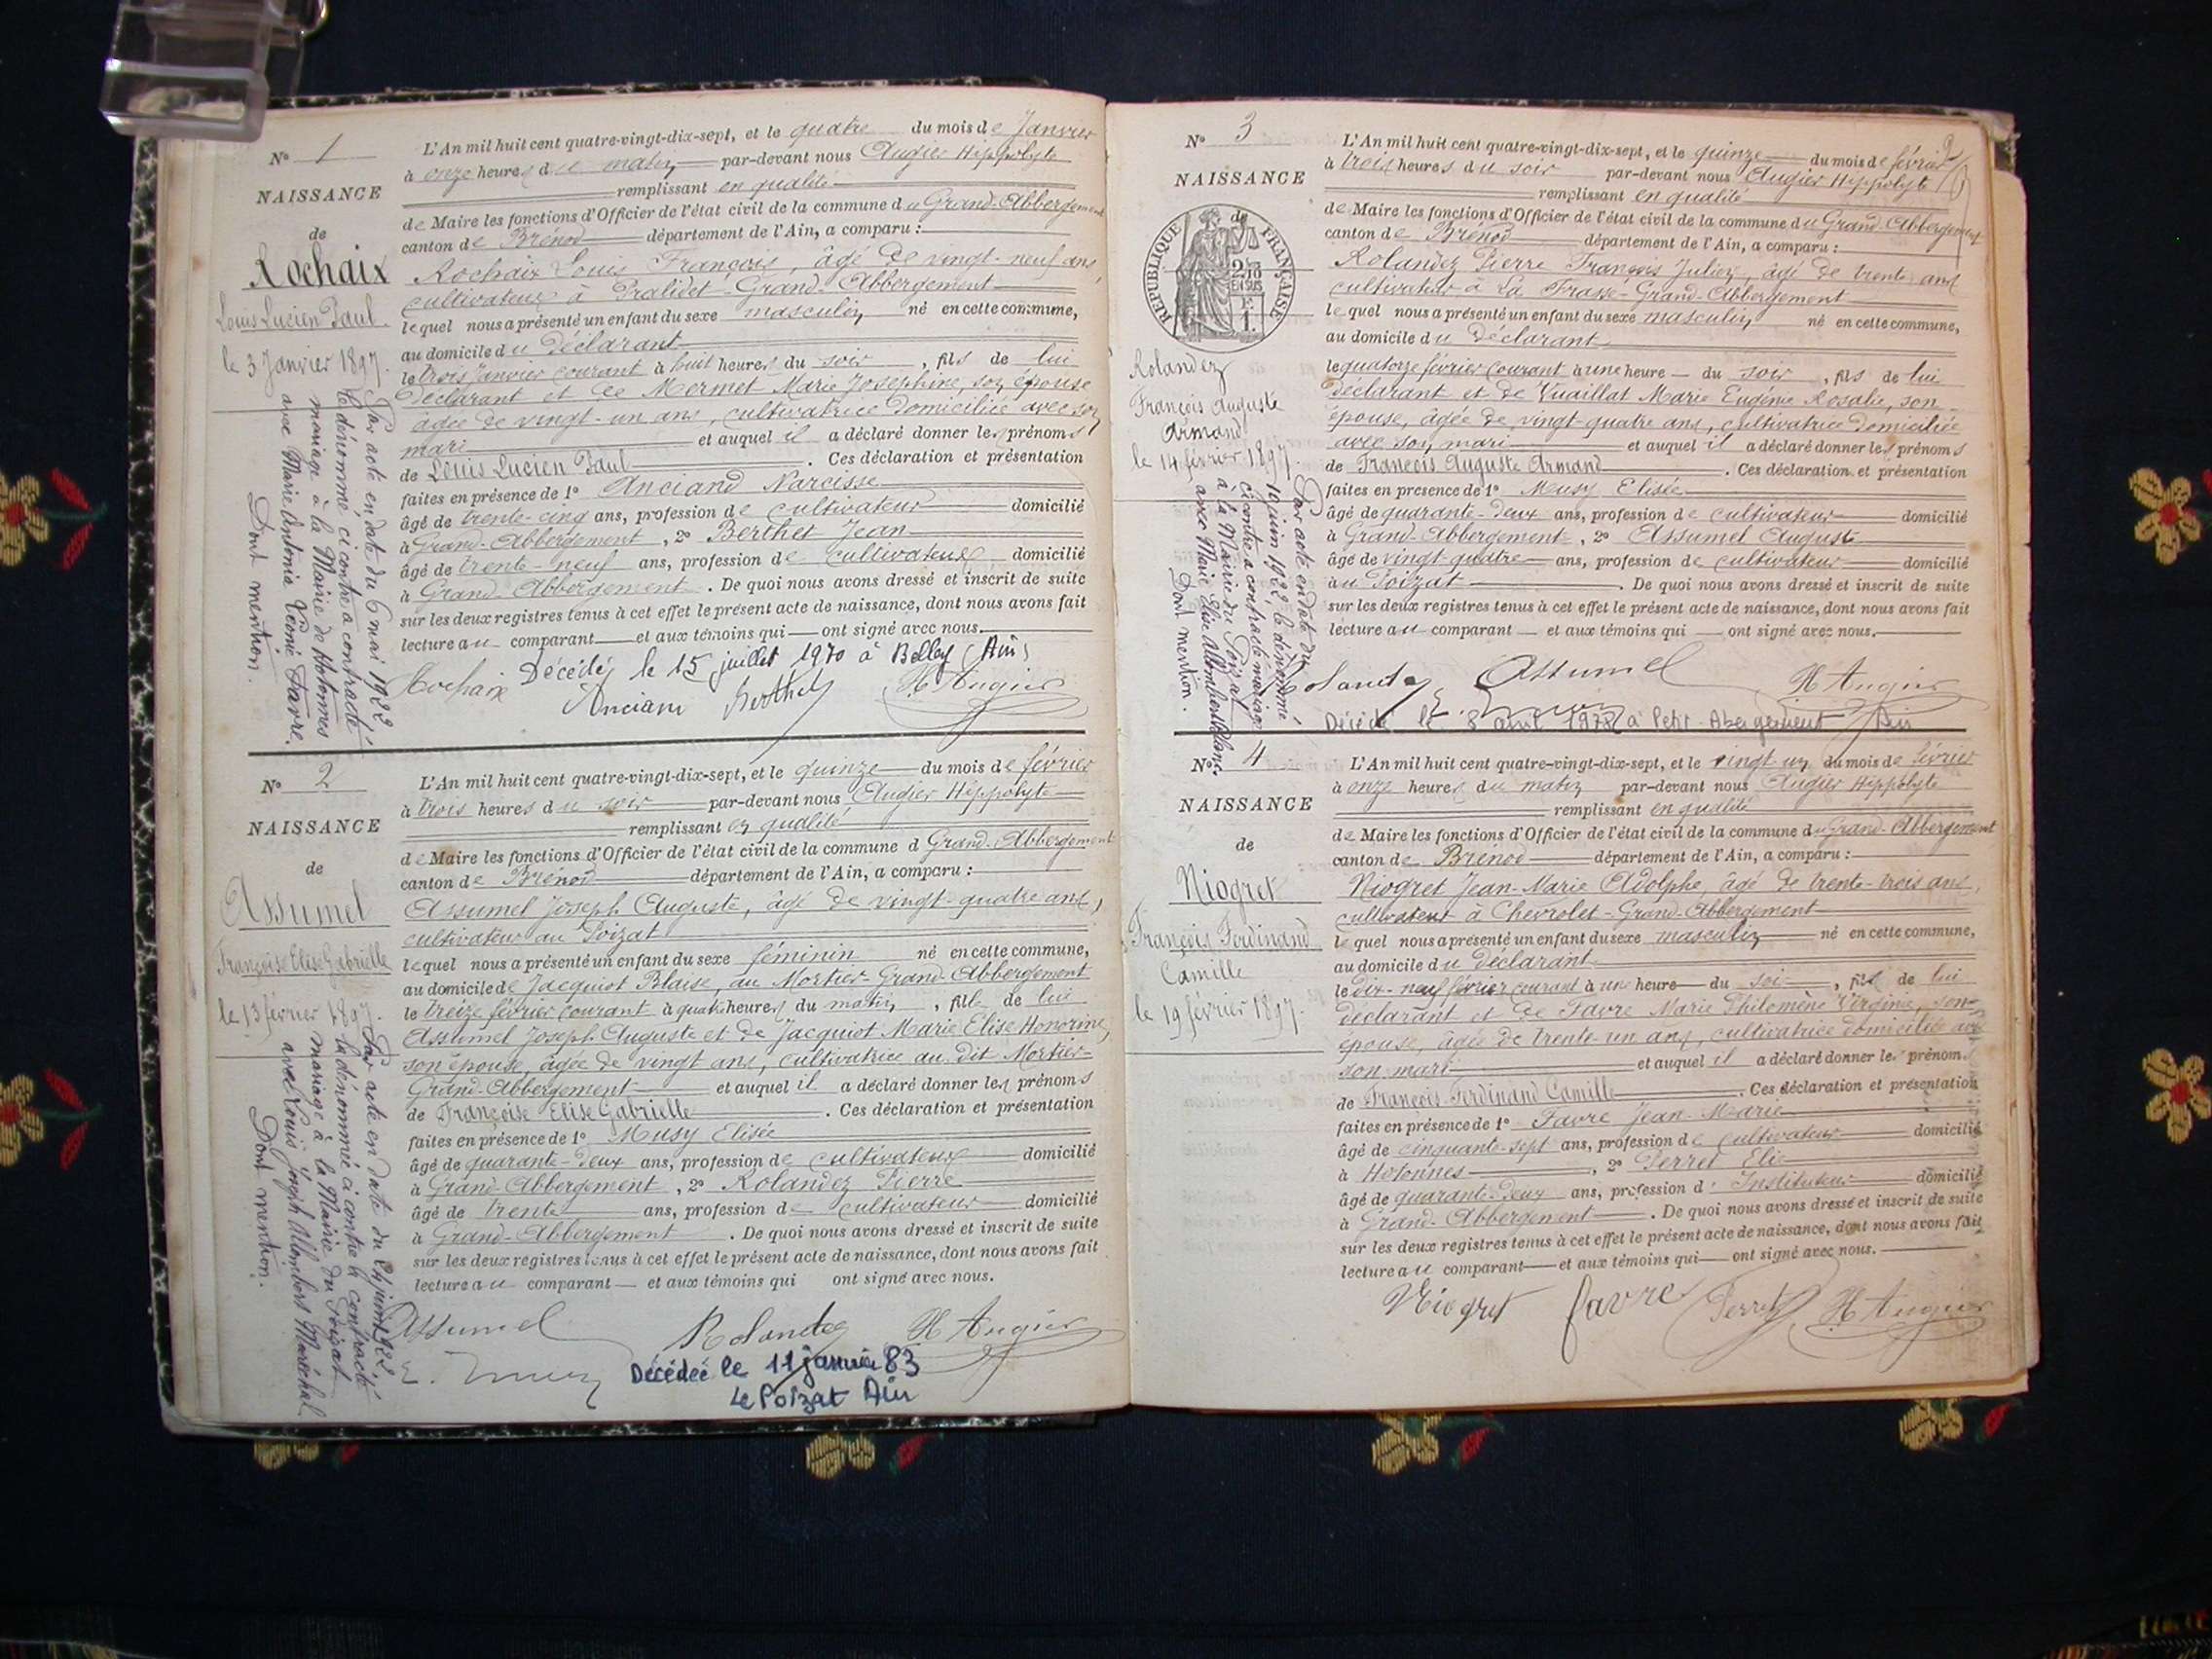 N° 1
NAISSANCE
de
Rochaix
Louis Lucien Paul.
le 3 Janvier 1897.
Par acte en date du 6 mai 1922
le dénommé ci contre a contracté
mariage à la Mairie de Hotonnes
avec Marie Antonia Léonie Favre.
Dont mention.
L'An mil huit cent quatre-vingt-dix-sept, et le quatre du mois de Janvier
à onze heures du matin par-devant nous Augier Hippolyte
remplissant en qualité
de Maire les fonctions d'Officier de l'état civil de la commune du Grand-Abbergement
canton de Brénod département de l'Ain, a comparu :
Rochaix Louis François, âgé de vingt-neuf ans,
cultivateur à Pralidet-Grand-Abbergement
lequel nous a présenté un enfant du sexe masculin né en cette commune,
au domicile du déclarant
le trois Janvier courant à huit heures du soir, fils de lui
déclarant et de Mermet Marie Josephine, son épouse
âgée de vingt-un ans, cultivatrice domiciliée avec son
mari et auquel il a déclaré donner les prénoms
de Louis Lucien Paul. Ces déclaration et présentation
faites en présence de 1° Anciand Narcisse
âgé de trente-cinq ans, profession de cultivateur domicilié
à Grand-Abbergement, 2° Berthet Jean
âgé de trente-neuf ans, profession de cultivateur domicilié
à Grand-Abbergement. De quoi nous avons dressé et inscrit de suite
sur les deux registres tenus à cet effet le présent acte de naissance, dont nous avons fait
lecture au comparant et aux témoins qui ont signé avec nous.
Décédé le 15 juillet 1970 à Belley (Ain)
Rochaix Anciand Berthet H Augier
N° 2
NAISSANCE
de
Assumel
Françoise Elise Gabrielle
le 13 février 1897.
Par acte en date du
la dénommée ci contre a contracté
mariage à la Mairie du Poizat
avec Louis Joseph Allombert Maréchal.
Dont mention.
L'An mil huit cent quatre-vingt-dix-sept, et le quinze du mois de février
à trois heures du soir par-devant nous Augier Hippolyte
remplissant en qualité
de Maire les fonctions d'Officier de l'état civil de la commune d Grand-Abbergement
canton de Brénod département de l'Ain, a comparu :
Assumel Joseph Auguste, âgé de vingt-quatre ans,
cultivateur au Poizat
lequel nous a présenté un enfant du sexe féminin né en cette commune,
au domicile de Jacquiot Blaise, au Mortier-Grand-Abbergement
le treize février courant à quatre heures du matin, fille de lui
Assumel Joseph Auguste et de Jacquiot Marie Elise Honorine,
son épouse, âgée de vingt ans, cultivatrice au dit Mortier-
Grand-Abbergement et auquel il a déclaré donner les prénoms
de Françoise Elise Gabrielle. Ces déclaration et présentation
faites en présence de 1° Musy Elisée
âgé de quarante-deux ans, profession de cultivateur domicilié
à Grand-Abbergement, 2° Rolandez Pierre
âgé de trente ans, profession de cultivateur domicilié
à Grand-Abbergement. De quoi nous avons dressé et inscrit de suite
sur les deux registres tenus à cet effet le présent acte de naissance, dont nous avons fait
lecture au comparant et aux témoins qui ont signé avec nous.
Assumel Rolandez H Augier
E. Musy
Décédée le 11 janvier 83
Le Poizat Ain
2
N° 3
NAISSANCE
de
RÉPUBLIQUE FRANÇAISE
Rolandez
François Auguste
Armand
le 14 février 1897.
Par acte en date du
10 juin 1922, le dénommé
ci contre a contracté mariage
à la Mairie du Poizat
avec Marie Elise Allombert Blanc.
Dont mention.
L'An mil huit cent quatre-vingt-dix-sept, et le quinze du mois de février
à trois heures du soir par-devant nous Augier Hippolyte
remplissant en qualité
de Maire les fonctions d'Officier de l'état civil de la commune du Grand-Abbergement
canton de Brénod département de l'Ain, a comparu :
Rolandez Pierre François Julien, âgé de trente ans
cultivateur à La Frasse-Grand-Abbergement
lequel nous a présenté un enfant du sexe masculin né en cette commune,
au domicile du déclarant
le quatorze février courant à une heure du soir, fils de lui
déclarant et de Vuaillat Marie Eugénie Rosalie, son
épouse, âgée de vingt-quatre ans, cultivatrice domiciliée
avec son mari et auquel il a déclaré donner les prénoms
de François Auguste Armand. Ces déclaration et présentation
faites en présence de 1° Musy Elisée
âgé de quarante-deux ans, profession de cultivateur domicilié
à Grand-Abbergement, 2° Assumel Auguste
âgé de vingt-quatre ans, profession de cultivateur domicilié
au Poizat. De quoi nous avons dressé et inscrit de suite
sur les deux registres tenus à cet effet le présent acte de naissance, dont nous avons fait
lecture au comparant et aux témoins qui ont signé avec nous.
Rolandez Assumel H Augier
Décédé le 8 avril à Petit-Abergement Ain
N° 4
NAISSANCE
de
Niogret
François Ferdinand
Camille
le 19 février 1897.
L'An mil huit cent quatre-vingt-dix-sept, et le vingt un du mois de février
à onze heures du matin par-devant nous Augier Hippolyte
remplissant en qualité
de Maire les fonctions d'Officier de l'état civil de la commune du Grand-Abbergement
canton de Brénod département de l'Ain, a comparu :
Niogret Jean-Marie Adolphe, âgé de trente-trois ans,
cultivateur à Chevrolet-Grand-Abbergement
lequel nous a présenté un enfant du sexe masculin né en cette commune,
au domicile du déclarant
le dix-neuf février courant à une heure du soir, fils de lui
déclarant et de Favre Marie Philomène Virginie, son
épouse, âgée de trente-un ans, cultivatrice domiciliée avec
son mari et auquel il a déclaré donner les prénom
de François-Ferdinand Camille. Ces déclaration et présentation
faites en présence de 1° Favre Jean-Marie
âgé de cinquante-sept ans, profession de cultivateur domicilié
à Hotonnes, 2° Perret Elie
âgé de quarante-deux ans, profession d' Instituteur domicilié
à Grand-Abbergement. De quoi nous avons dressé et inscrit de suite
sur les deux registres tenus à cet effet le présent acte de naissance, dont nous avons fait
lecture au comparant et aux témoins qui ont signé avec nous.
Niogret Favre Perret H Augier